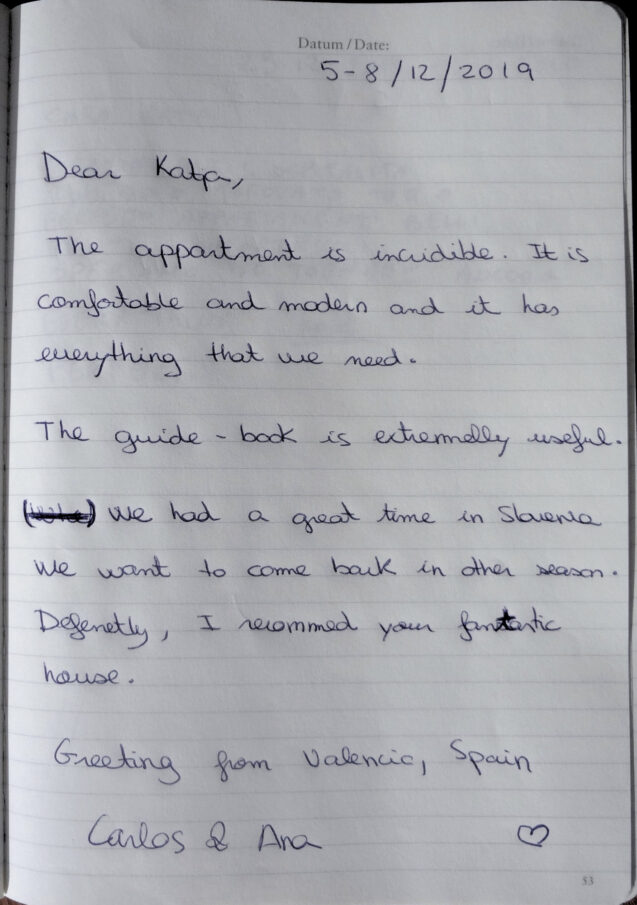 Datum / Date:
5-8/12/2019
Dear Katja,
The appartment is incridible. It is
comfortable and modern and it has
everything that we need.
The guide-book is extermelly useful.
We had a great time in Slovenia
We want to come back in other season.
Defenetly, I recommed your fantastic
house.
Greeting from Valencia, Spain
Carlos & Ana ♡
53